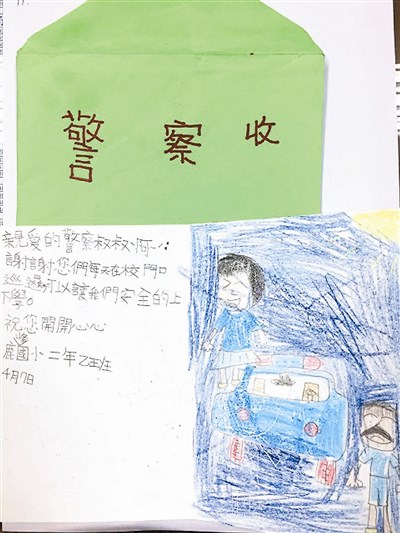 警察收
親愛的警察叔叔、阿
謝謝您們每天在校門口
巡邏可以讓我們安全的上
下學。
祝您開開心心
鹿國小二年乙班
4月7日